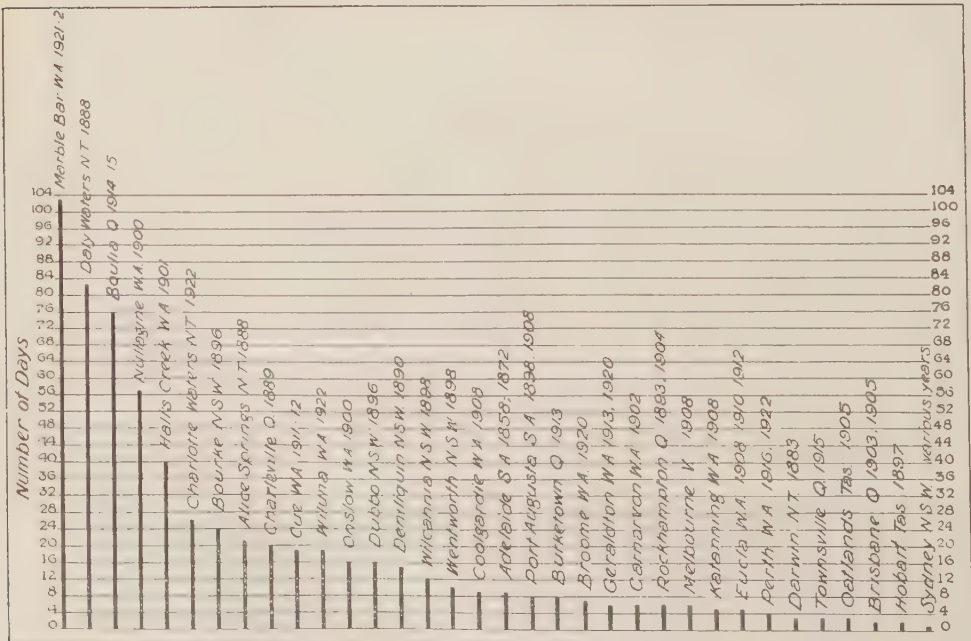 Number of Days
104
100
96
92
88
84
80
76
72
68
64
60
56
52
48
44
40
36
32
28
24
20
16
12
8
4
0
Marble Bar WA 1921-2
Daly Waters NT 1888
Boulia Q 1914 15
Nullagine W.A. 1900
Halls Creek WA 1901
Charlotte Waters NT 1922
Bourke NSW 1896
Alice Springs NT 1888
Charleville Q 1889
Cue WA 1911-12
Wiluna WA 1922
Onslow WA 1900
Dubbo NSW 1896
Deniliquin NSW 1890
Wilcannia NSW 1898
Wentworth NSW 1898
Coolgardie WA 1908
Adelaide SA 1858, 1872
Port Augusta SA 1898, 1908
Burketown Q 1913
Broome WA. 1920
Geraldton WA 1913, 1920
Carnarvon WA 1902
Rockhampton Q 1893, 1904
Melbourne V 1908
Katanning WA 1908
Eucla W.A. 1908 1910 1912
Perth WA 1916, 1922
Darwin NT 1883
Townsville Q 1915
Oatlands Tas. 1905
Brisbane Q 1903, 1905
Hobart Tas 1897
Sydney NSW various years
104
100
96
92
88
84
80
76
72
68
64
60
56
52
48
44
40
36
32
28
24
20
16
12
8
4
0